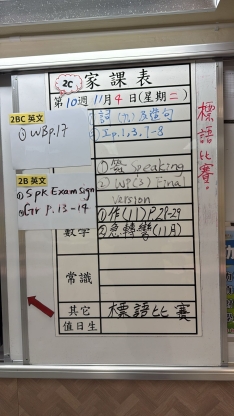 2C 家課表
第10週 11月4日(星期二)
2BC 英文
① WBp.17
①詞(九)及造句
②Ip.1,3,7-8
2B 英文
① Spk Exam sign
② Gr P.13-14
①簽 Speaking
② WP(3) Final
version
數學
①作(11)P.27-29
②急轉彎(11月)
常識
其它
標語比賽
值日生
標語比賽